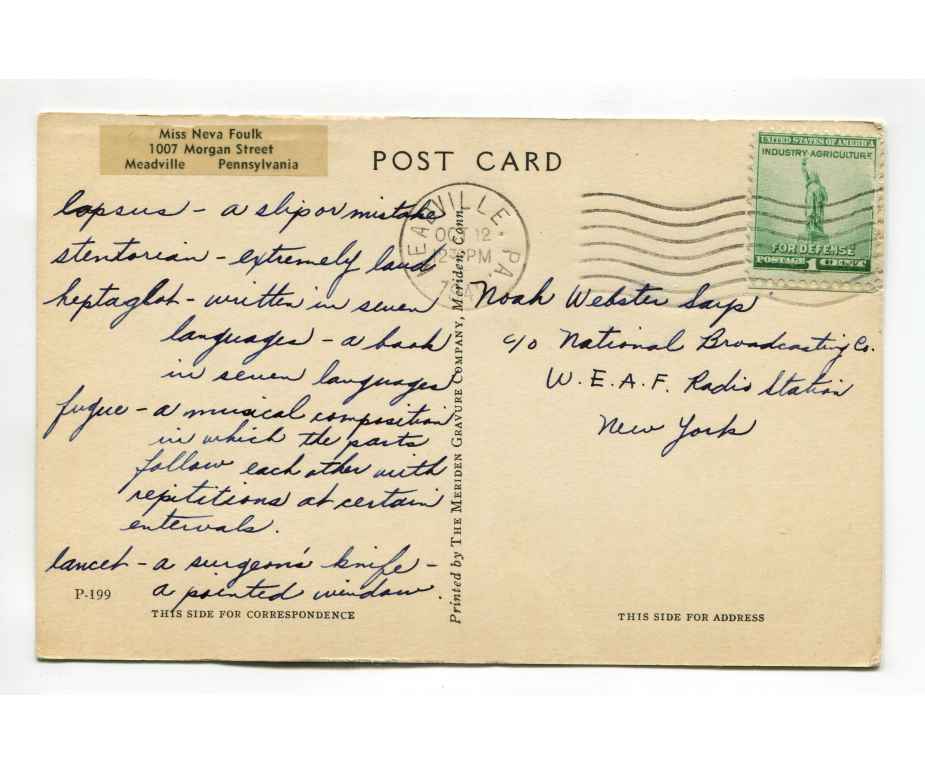 Miss Neva Foulk
1007 Morgan Street
Meadville Pennsylvania
POST CARD
lapsus - a slip or mistake
stentorian - extremely loud
heptaglot - written in seven
languages - a book
in seven languages
fugue - a musical composition
in which the parts
follow each other with
repititions at certain
entervals.
lancet - a surgeon's knife -
a pointed window.
P-199
THIS SIDE FOR CORRESPONDENCE
Printed by THE MERIDEN GRAVURE COMPANY, Meriden, Conn.
MEADVILLE, PA.
OCT 12
PM
UNITED STATES OF AMERICA
INDUSTRY AGRICULTURE
FOR DEFENSE
POSTAGE 1 CENT
Noah Webster Says
c/o National Broadcasting Co.
W.E.A.F. Radio Station
New York
THIS SIDE FOR ADDRESS